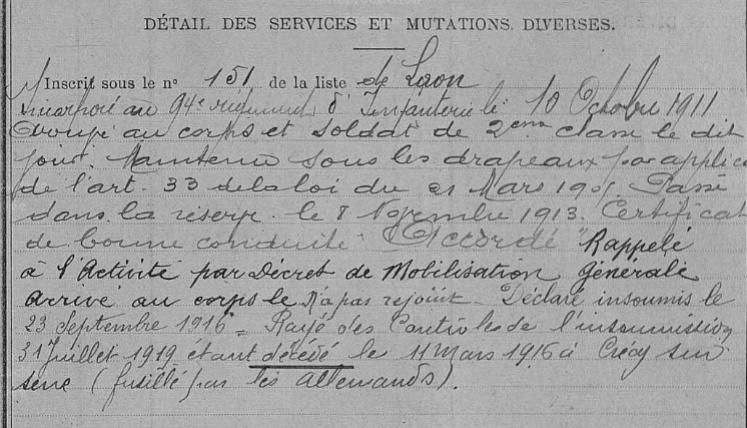 DÉTAIL DES SERVICES ET MUTATIONS DIVERSES.
Inscrit sous le n° 151 de la liste de Laon
Incorporé au 94e régiment d'Infanterie le 10 Octobre 1911
au corps et soldat de 2ème classe le dit
jour. Maintenu sous les drapeaux par applica
de l'art. 33 de la loi du 21 Mars 1905. Passé
dans la réserve le 8 Novembre 1913. Certificat
de bonne conduite "Accordé" Rappelé
à l'Activité par Décret de Mobilisation générale
arrivé au corps le N'a pas rejoint - Déclaré insoumis le
23 Septembre 1916 = Rayé des Contrôles de l'insoumission
31 Juillet 1919 étant décédé le 11 Mars 1916 à Crécy sur
serre (fusillé par les allemands).